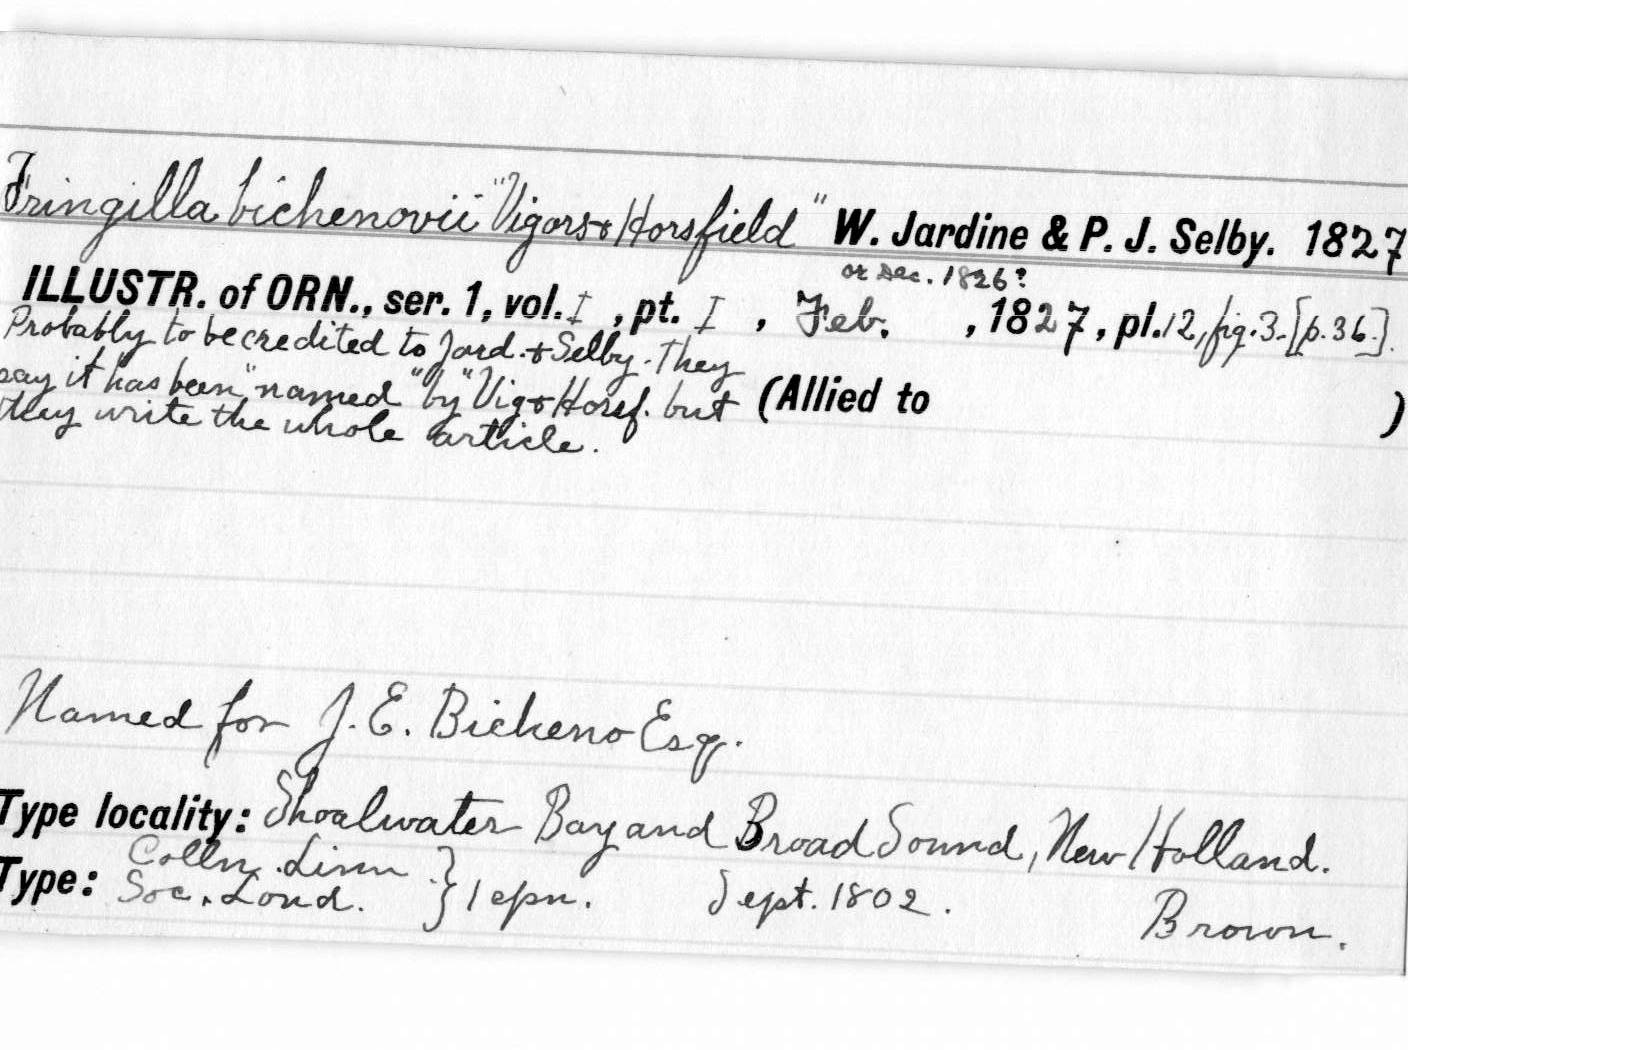 Fringilla bichenovii "Vigors & Horsfield" W. Jardine & P. J. Selby. 1827
or Dec. 1826?
ILLUSTR. of ORN., ser. 1, vol. I , pt. I , Feb. , 1827, pl. 12, fig. 3. [p. 36.].
Probably to be credited to Jard. & Selby. They
say it has been "named" by "Vig & Horsf. but (Allied to )
they write the whole article.
Named for J. E. Bicheno Esq.
Type locality: Shoalwater Bay and Broad Sound, New Holland.
Type: Colln. Linn
Soc. Lond. } 1 spn. Sept. 1802. Brown.